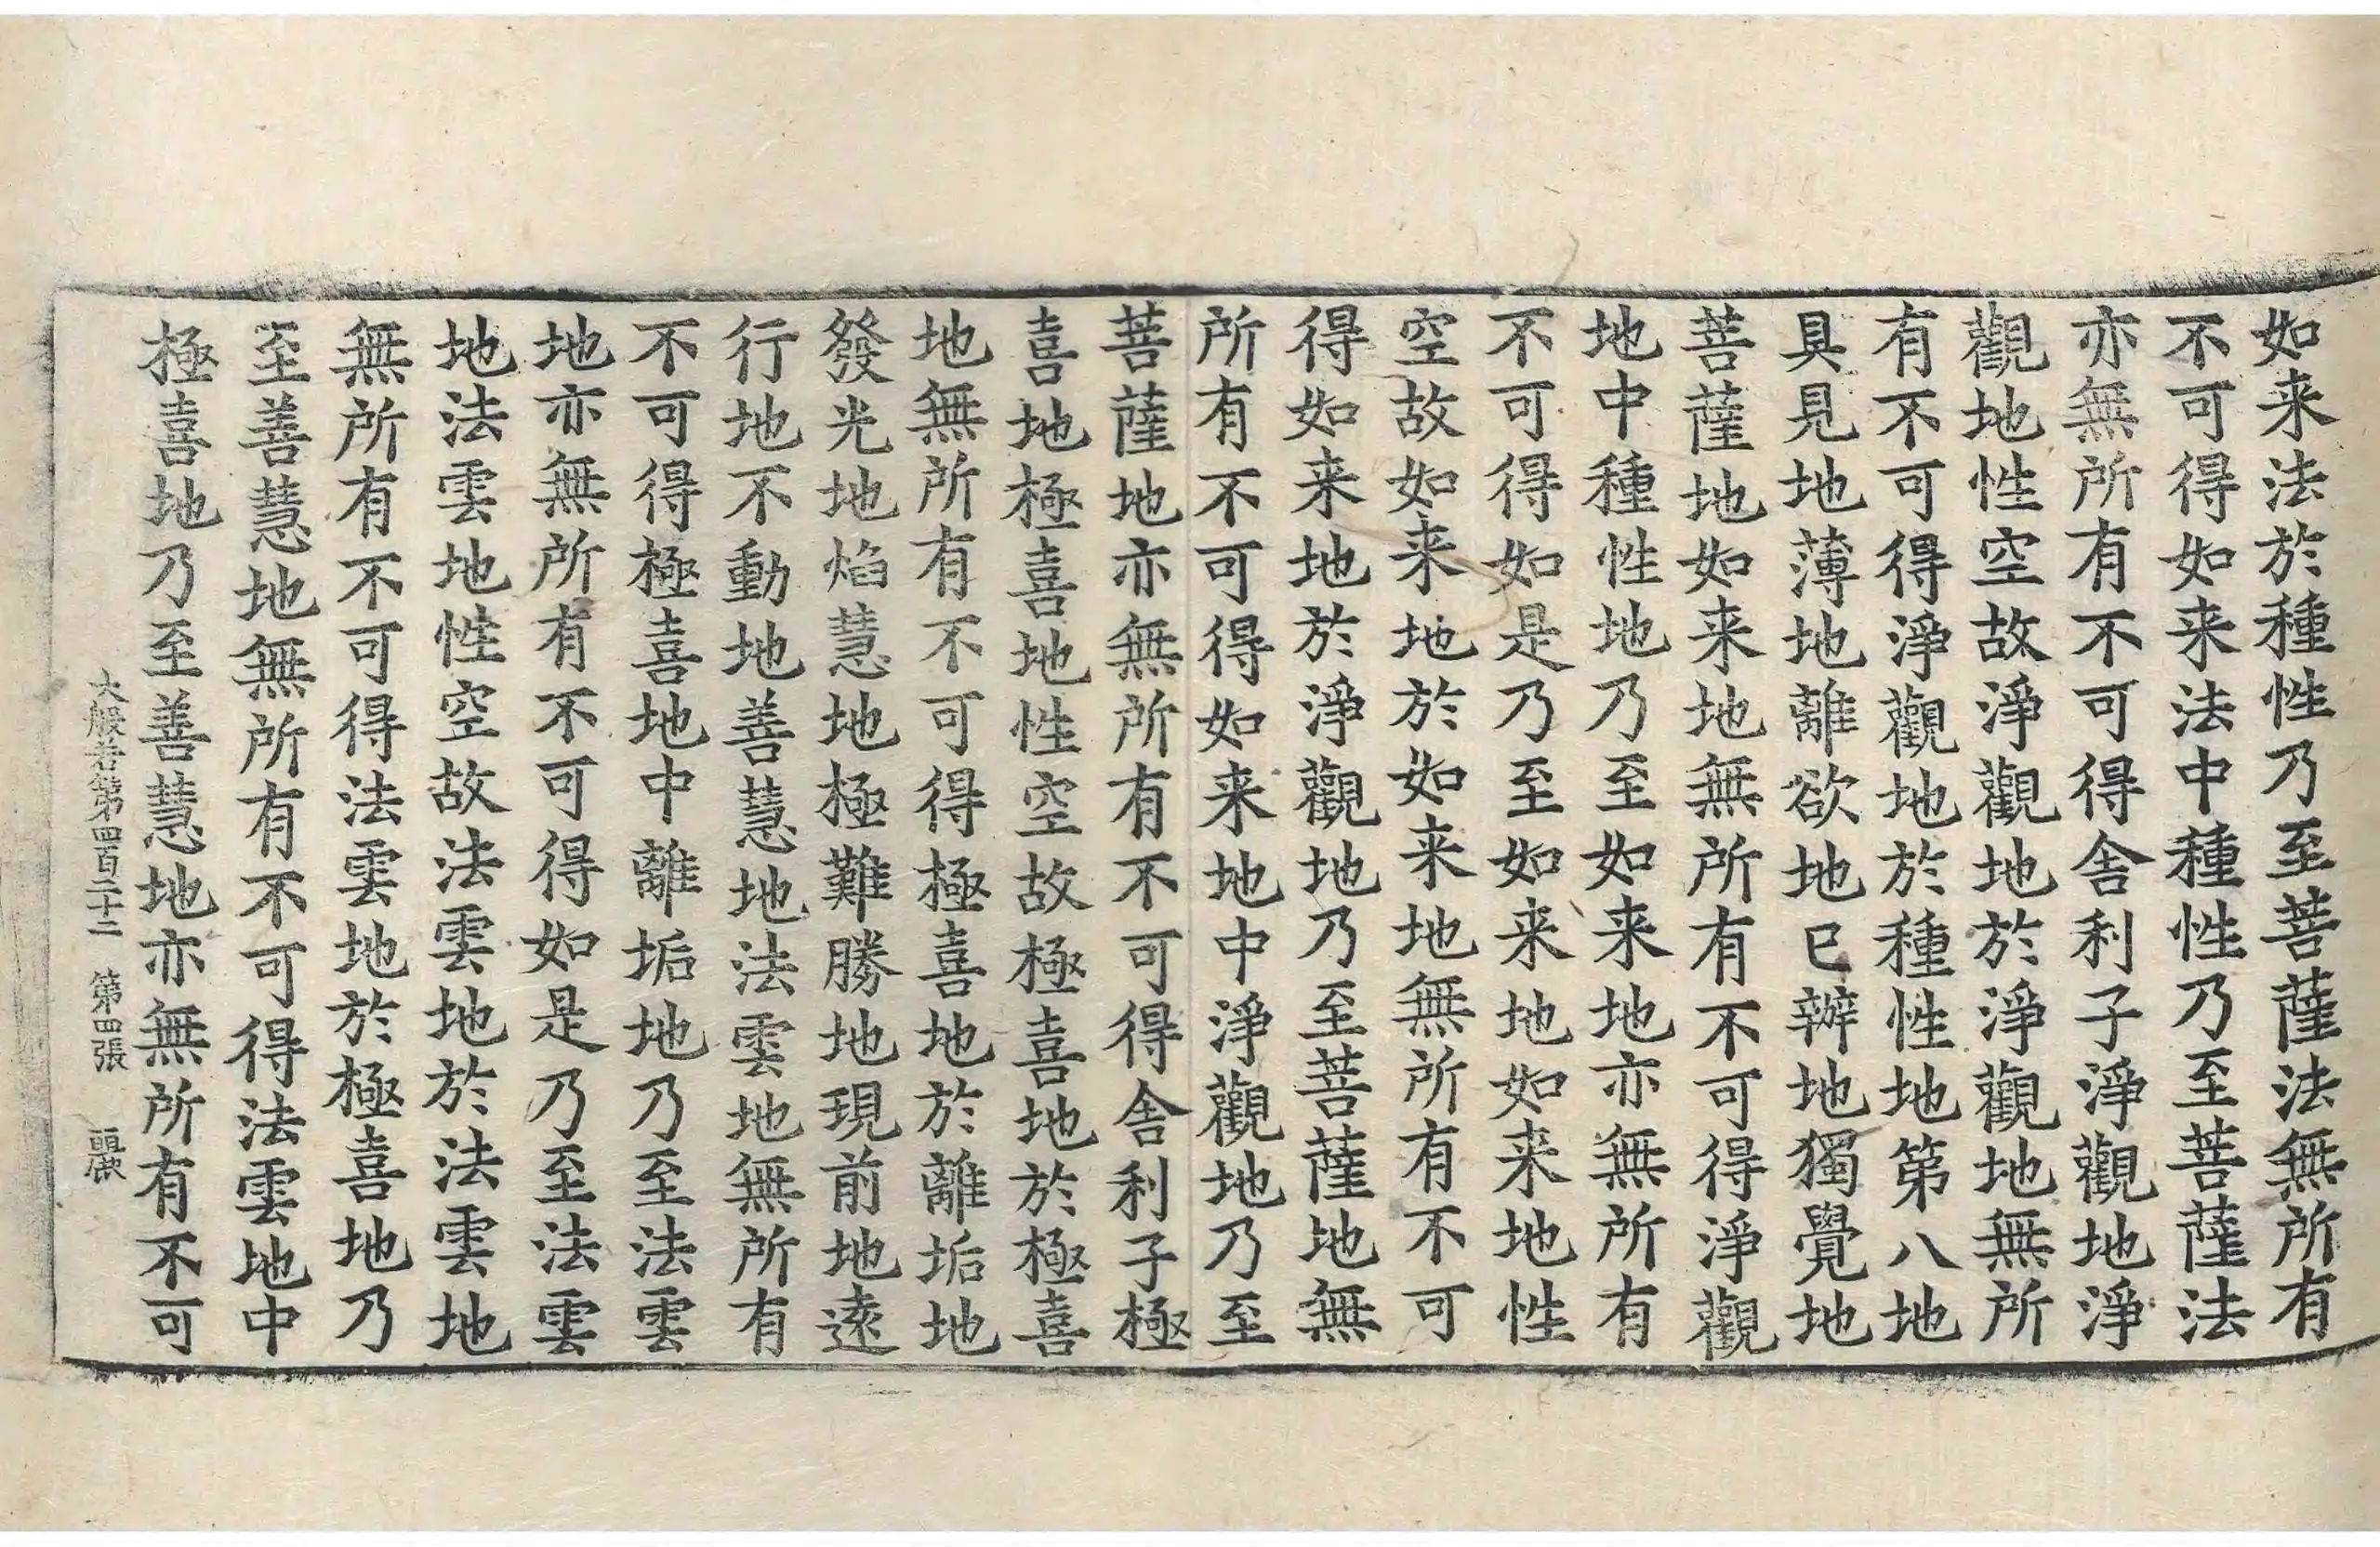 如来法於種性乃至菩薩法無所有
不可得如来法中種性乃至菩薩法
亦無所有不可得舍利子淨觀地淨
觀地性空故淨觀地於淨觀地無所
有不可得淨觀地於種性地第八地
具見地薄地離欲地已辦地獨覺地
菩薩地如来地無所有不可得淨觀
地中種性地乃至如来地亦無所有
不可得如是乃至如来地如来地性
空故如来地於如来地無所有不可
得如来地於淨觀地乃至菩薩地無
所有不可得如来地中淨觀地乃至
菩薩地亦無所有不可得舍利子極
喜地極喜地性空故極喜地於極喜
地無所有不可得極喜地於離垢地
發光地焰慧地極難勝地現前地遠
行地不動地善慧地法雲地無所有
不可得極喜地中離垢地乃至法雲
地亦無所有不可得如是乃至法雲
地法雲地性空故法雲地於法雲地
無所有不可得法雲地於極喜地乃
至善慧地無所有不可得法雲地中
極喜地乃至善慧地亦無所有不可
大般若第四百二十二　第四張　麗